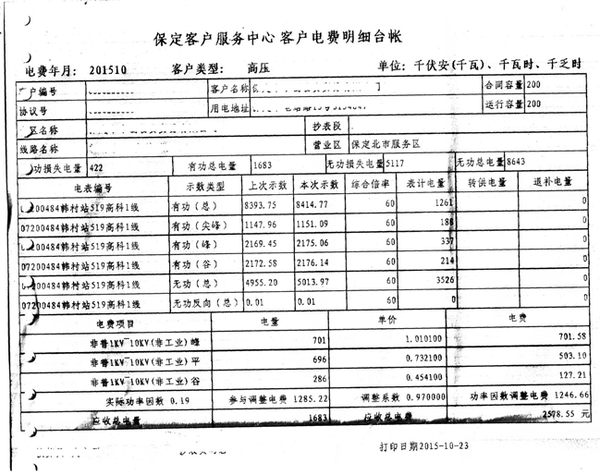 保定客户服务中心客户电费明细台帐
电费年月: 201510 客户类型: 高压 单位: 千伏安(千瓦)、千瓦时、千乏时
户编号 客户名称 合同容量 200
协议号 用电地址 运行容量 200
区名称 抄表段
线路名称 营业区 保定北市服务区
功损失电量 422 有功总电量 1683 无功损失电量 5117 无功总电量 8643
电表编号 示数类型 上次示数 本次示数 综合倍率 表计电量 转供电量 退补电量
200484韩村站519高科1线 有功(总) 8393.75 8414.77 60 1261 0
07200484韩村站519高科1线 有功(尖峰) 1147.96 1151.09 60 188 0
07200484韩村站519高科1线 有功(峰) 2169.45 2175.06 60 337 0
07200484韩村站519高科1线 有功(谷) 2172.58 2176.14 60 214 0
200484韩村站519高科1线 无功(总) 4955.20 5013.97 60 3526 0
07200484韩村站519高科1线 无功反向(总) 0.01 0.01 60 0 0
电费项目 电量 单价 电费
非普1KV-10KV(非工业)峰 701 1.010100 701.58
非普1KV-10KV(非工业)平 696 0.732100 503.10
非普1KV-10KV(非工业)谷 286 0.454100 127.21
实际功率因数 0.19 参与调整电费 1285.22 调整系数 0.970000 功率因数调整电费 1246.66
应收总电量 1683 应收总电费 2578.55 元
打印日期2015-10-23